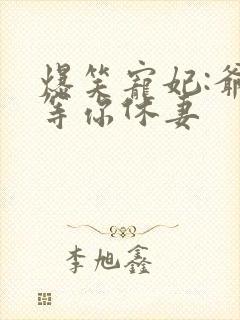 爆笑寵妃:爺
等你休妻
李旭鑫